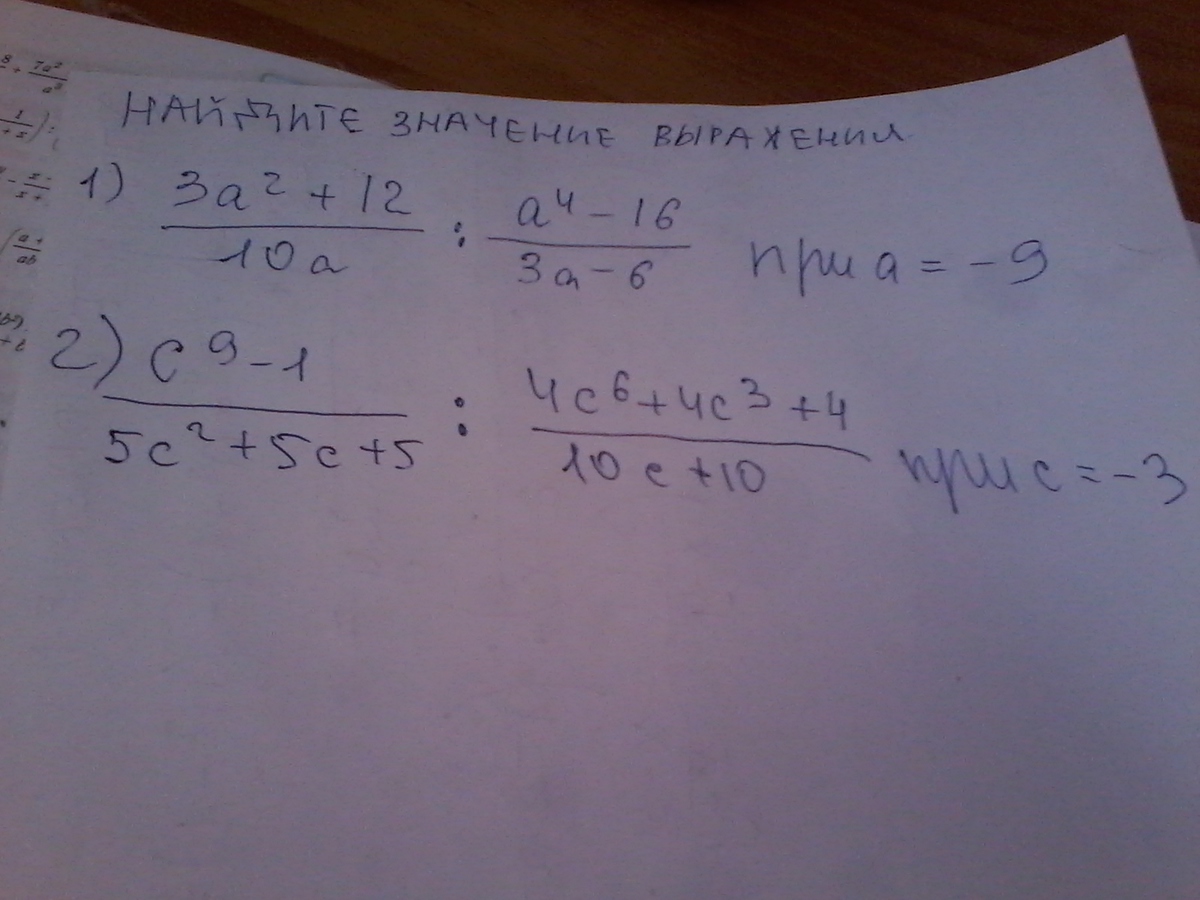 НАЙДИТЕ ЗНАЧЕНИЕ ВЫРАЖЕНИЯ
1) 3a² + 12 / 10a : a⁴ - 16 / 3a - 6 при a = -9
2) c⁹ - 1 / 5c² + 5c + 5 : 4c⁶ + 4c³ + 4 / 10c + 10 при c = -3